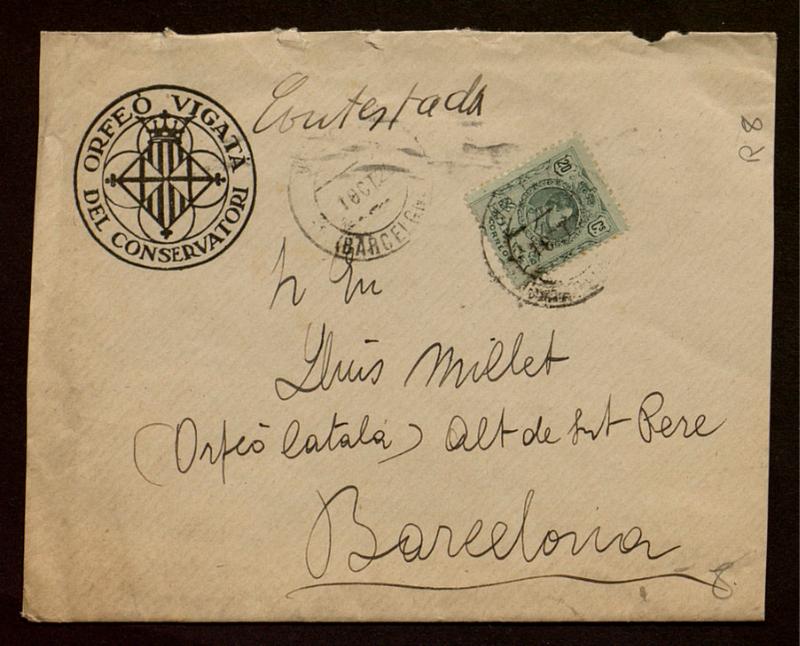 ORFEÓ VIGATÀ
DEL CONSERVATORI
Contestada
R 8
1 OCT
(BARCELONA
20
CS
Lluis Millet
(Orfeó Català) Alt de Snt Pere
Barcelona
8.